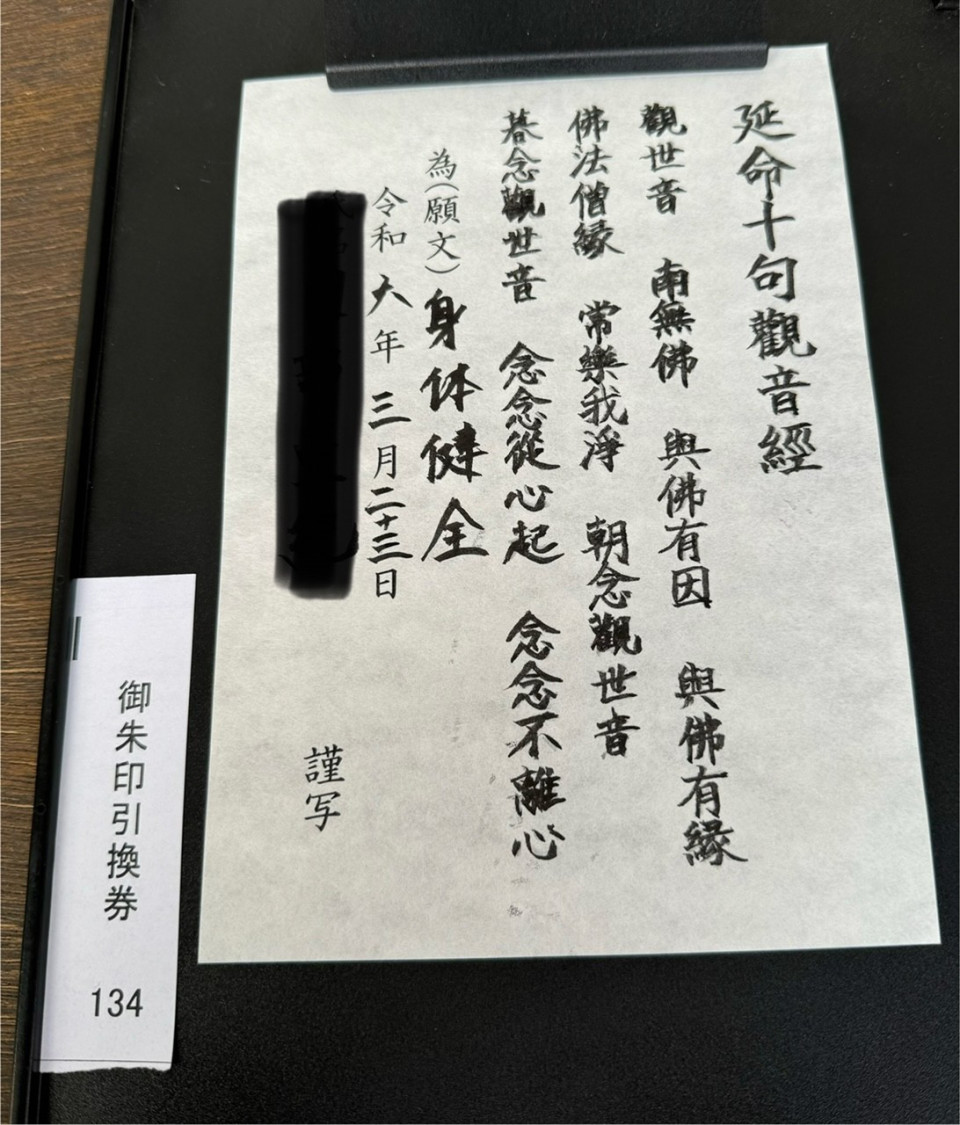 延命十句觀音經
觀世音 南無佛 與佛有因 與佛有縁
佛法僧縁 常樂我淨 朝念觀世音
暮念觀世音 念念從心起 念念不離心
為(願文) 身体健全
令和 六年 三月二十三日
謹写
御朱印引換券
134